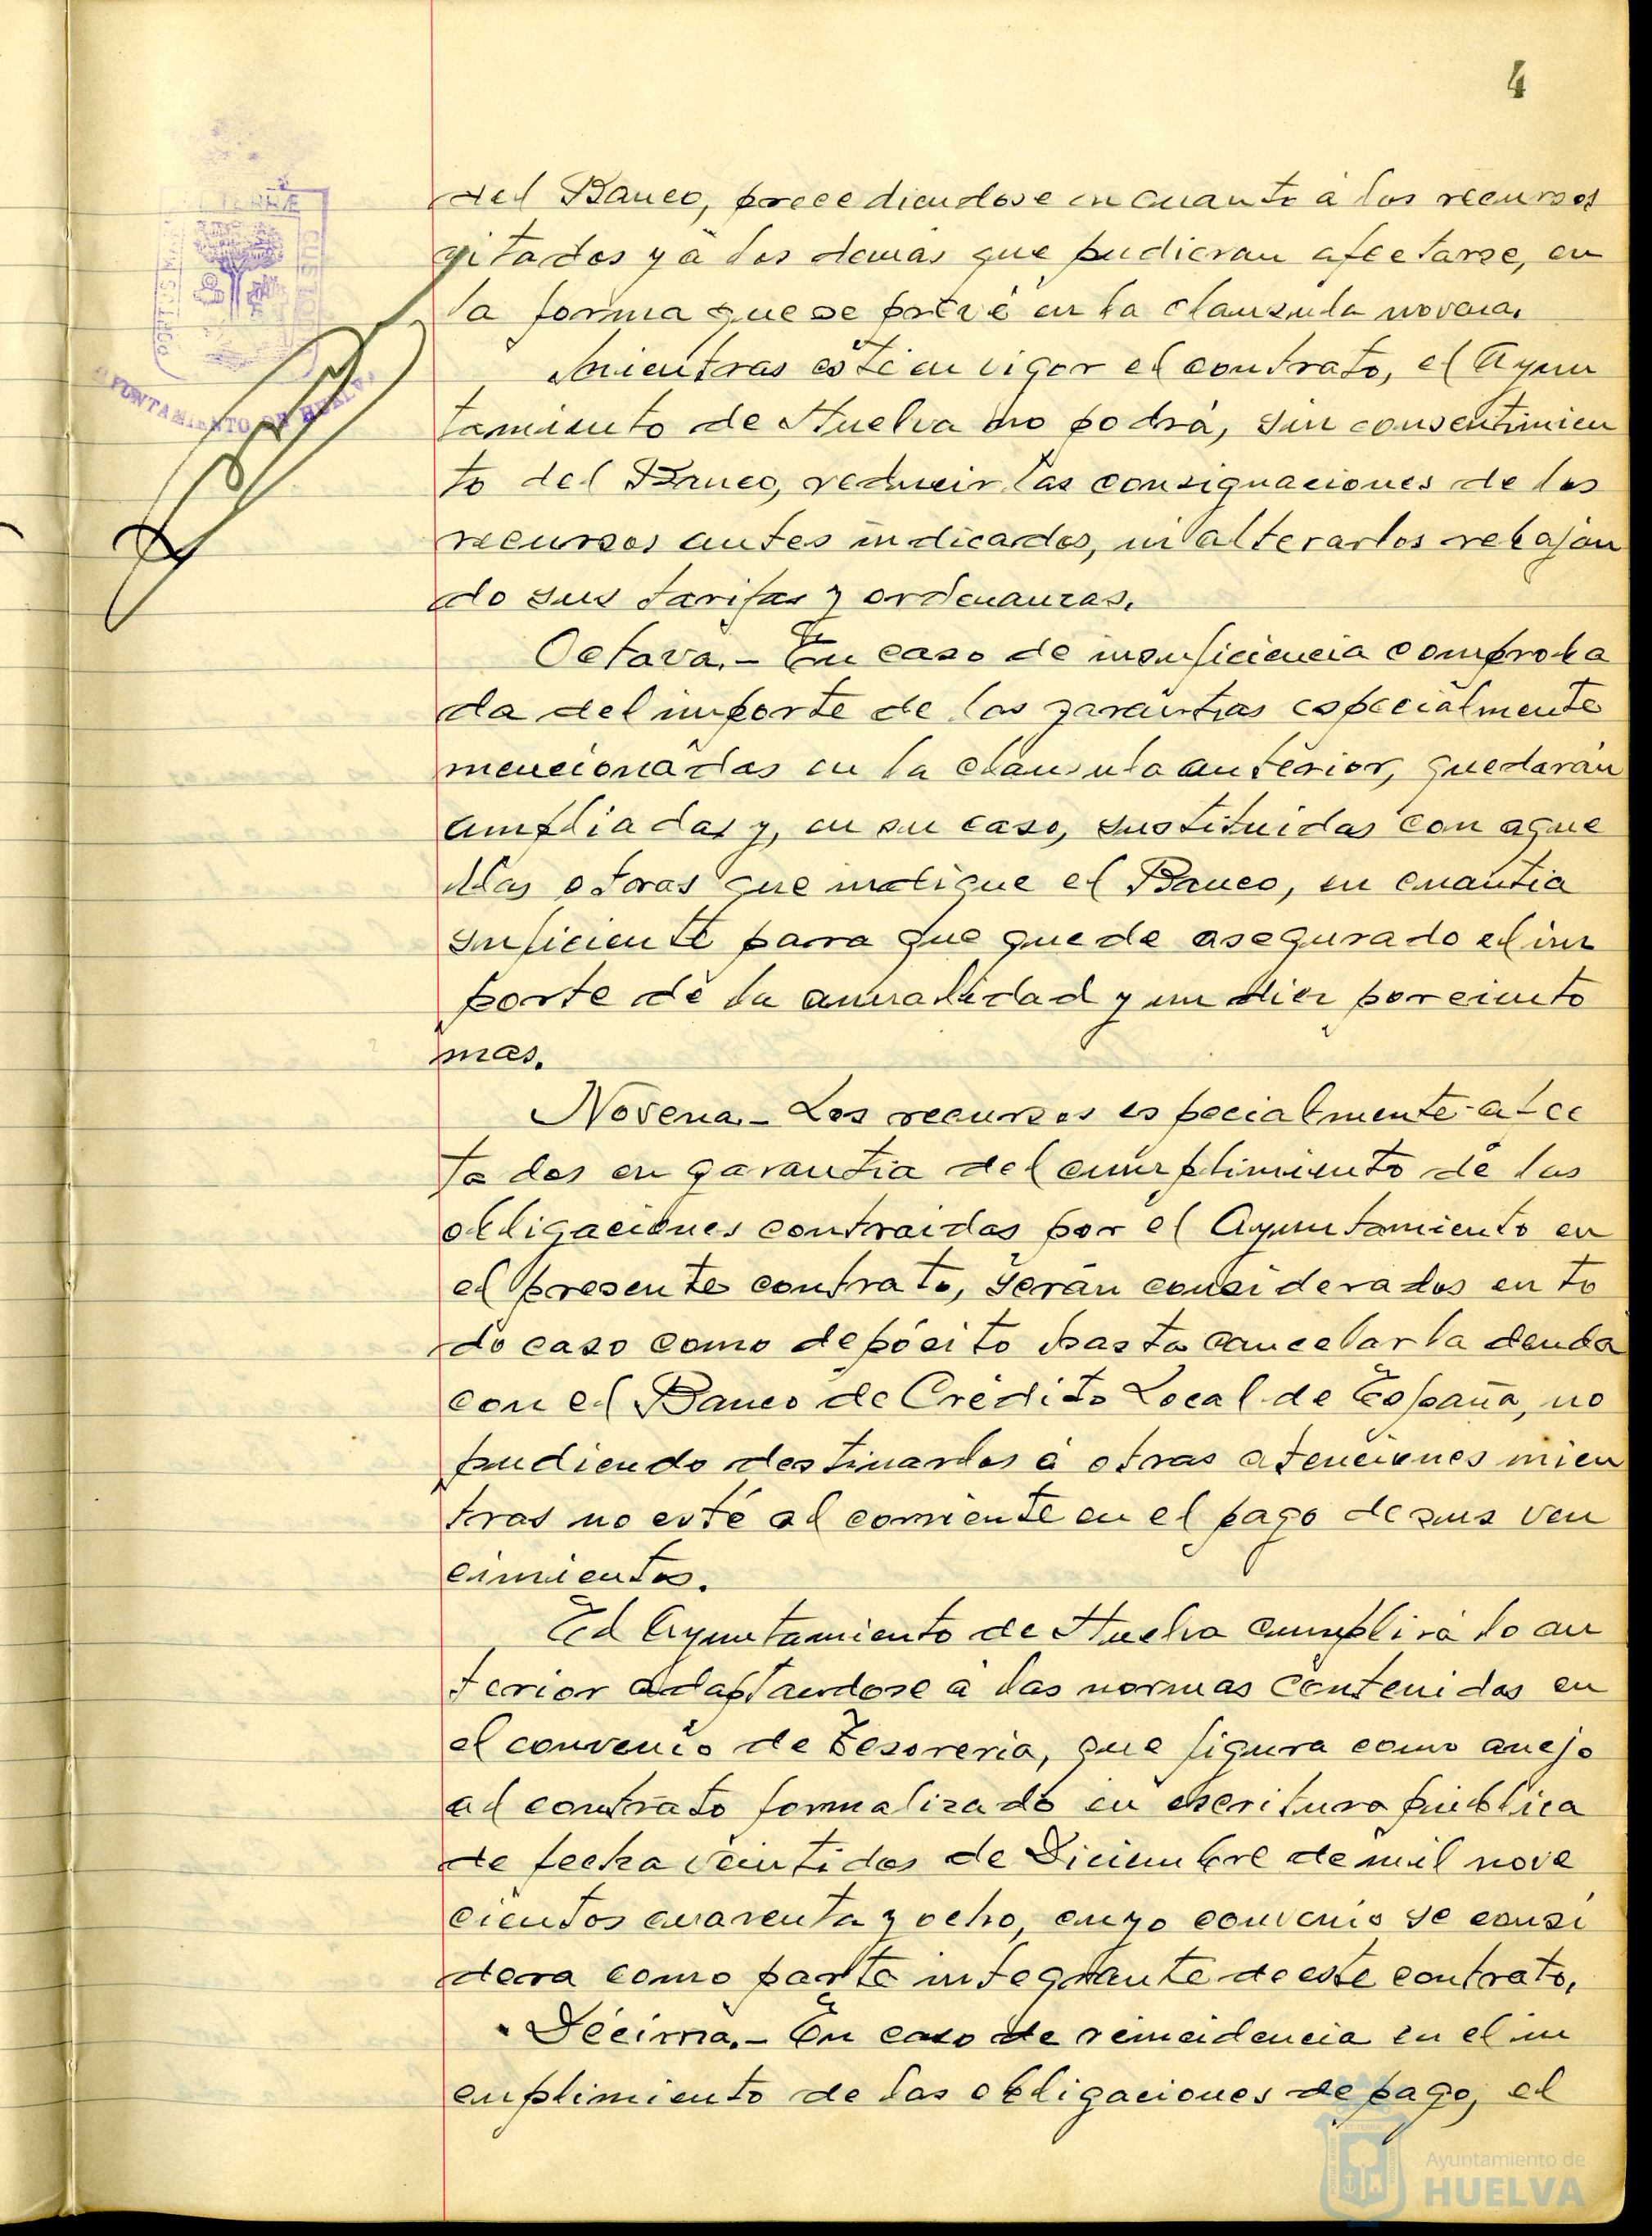 4
del Banco, procediendose en cuanto á los recursos
citados y á los demás que pudieran afectarse, en
la forma que se prevé en la clausula novena.
Mientras esté en vigor el contrato, el Ayun
tamiento de Huelva no podrá, sin consentimien
to del Banco, reducir las consignaciones de los
recursos antes indicados, ni alterarlos rebajan
do sus tarifas y ordenanzas.
Octava.- En caso de insuficiencia comproba
da del importe de las garantias especialmente
mencionadas en la clausula anterior, quedarán
ampliadas y, en su caso, sustituidas con aque
llas otras que indique el Banco, en cuantia
suficiente para que quede asegurado el im
porte de la anualidad y un diez por ciento
mas.
Novena.- Los recursos especialmente afec
tados en garantia del cumplimiento de las
obligaciones contraidas por el Ayuntamiento en
el presente contrato, serán considerados en to
do caso como depósito hasta cancelar la deuda
con el Banco de Crédito Local de España, no
pudiendo destinarlos á otras atenciones mien
tras no esté al corriente en el pago de sus ven
cimientos.
El Ayuntamiento de Huelva cumplirá lo an
terior adaptandose á las normas contenidas en
el convenio de Tesoreria, que figura como anejo
al contrato formalizado en escritura pública
de fecha veintidos de Diciembre de mil nove
cientos cuarenta y ocho, cuyo convenio se consi
dera como parte integrante de este contrato.
Décima.- En caso de reincidencia en el in
cuplimiento de las obligaciones de pago, el
AYUNTAMIENTO DE HUELVA
Ayuntamiento de
HUELVA